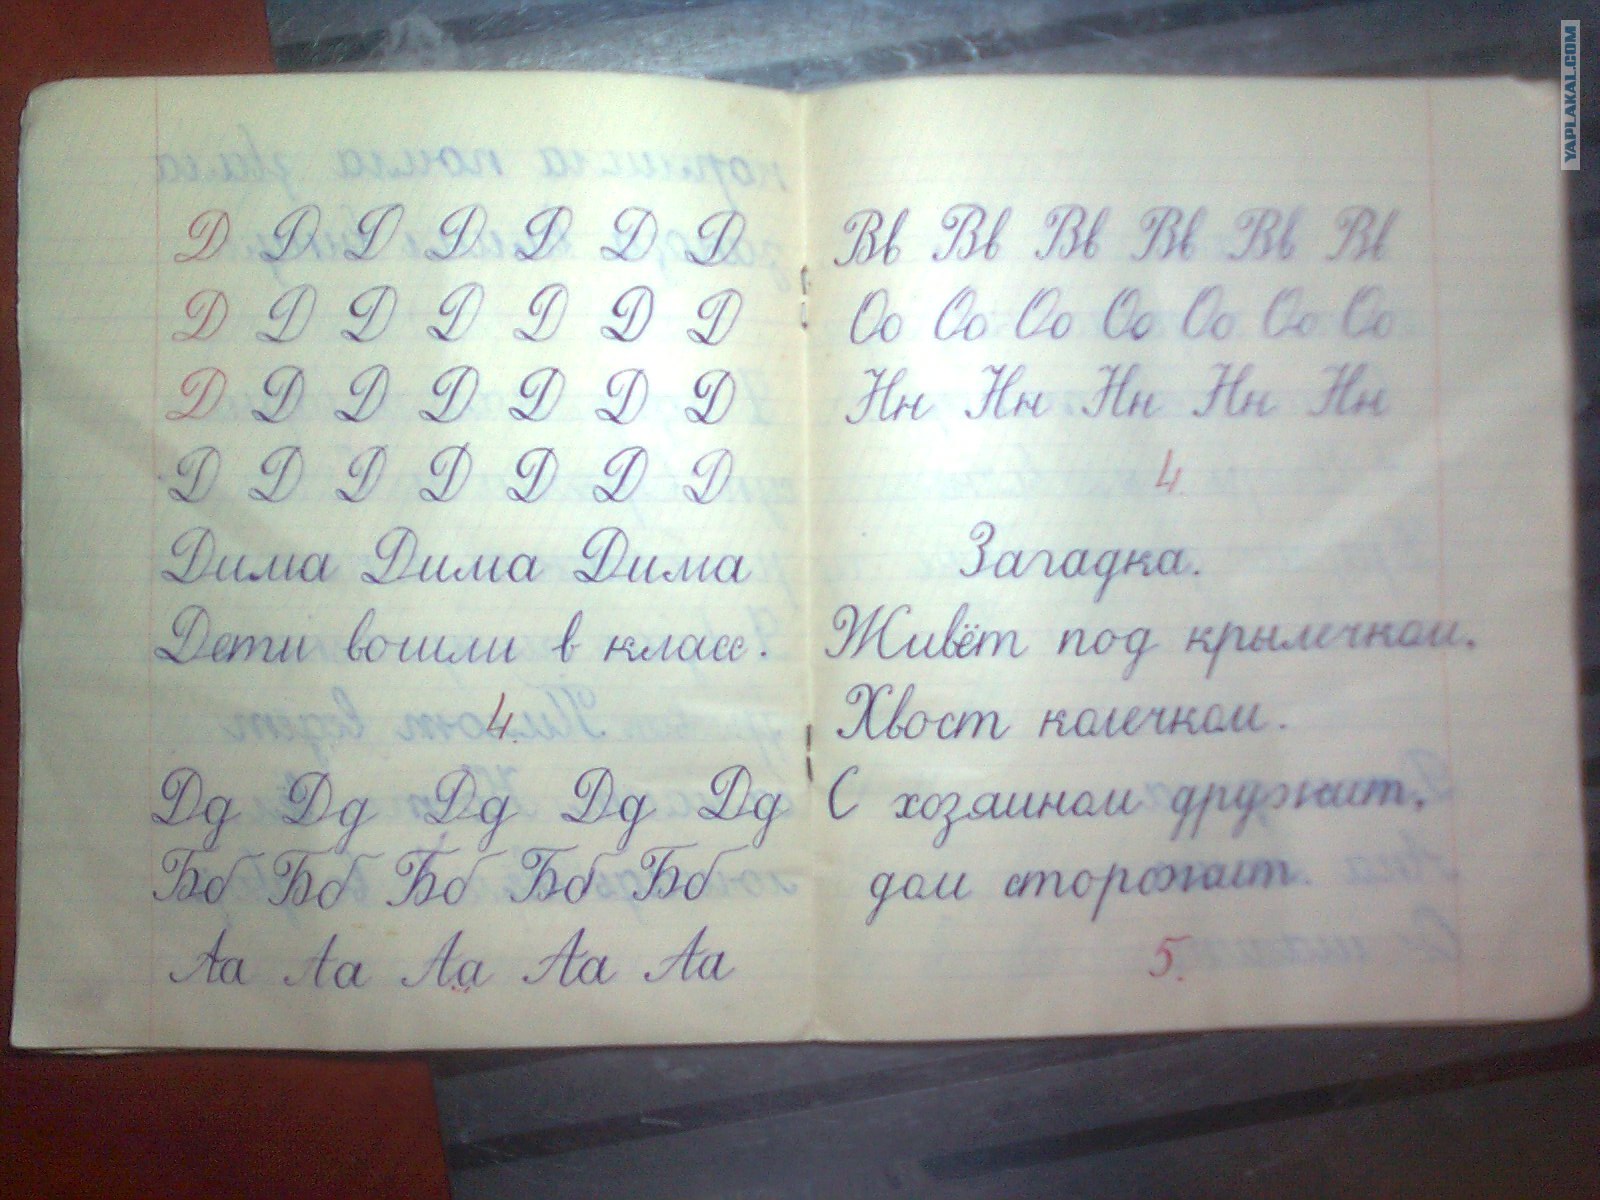 Д Д Д Д Д Д Д
Д Д Д Д Д Д Д
Д Д Д Д Д Д Д
Д Д Д Д Д Д Д
Дима Дима Дима
Дети вошли в класс.
4.
Дд Дд Дд Дд Дд
Бб Бб Бб Бб Бб
Аа Аа Аа Аа Аа
Вв Вв Вв Вв Вв Вв
Оо Оо Оо Оо Оо Оо Оо
Нн Нн Нн Нн Нн
4.
Загадка.
Живёт под крылечком.
Хвост колечком.
С хозяином дружит,
дом сторожит.
5.
YAPLAKAL.COM